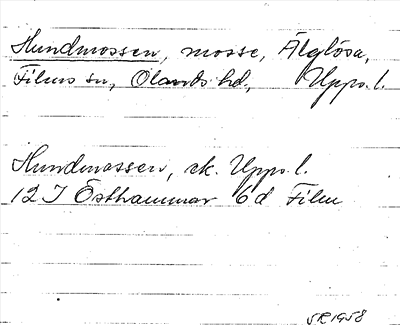 Hundmossen, mosse, Älglösa,
Films sn, Olands hd, Upps. l.
Hundmossen, ek. Upps. l.
12 I Östhammar 6d Film
SR 1958